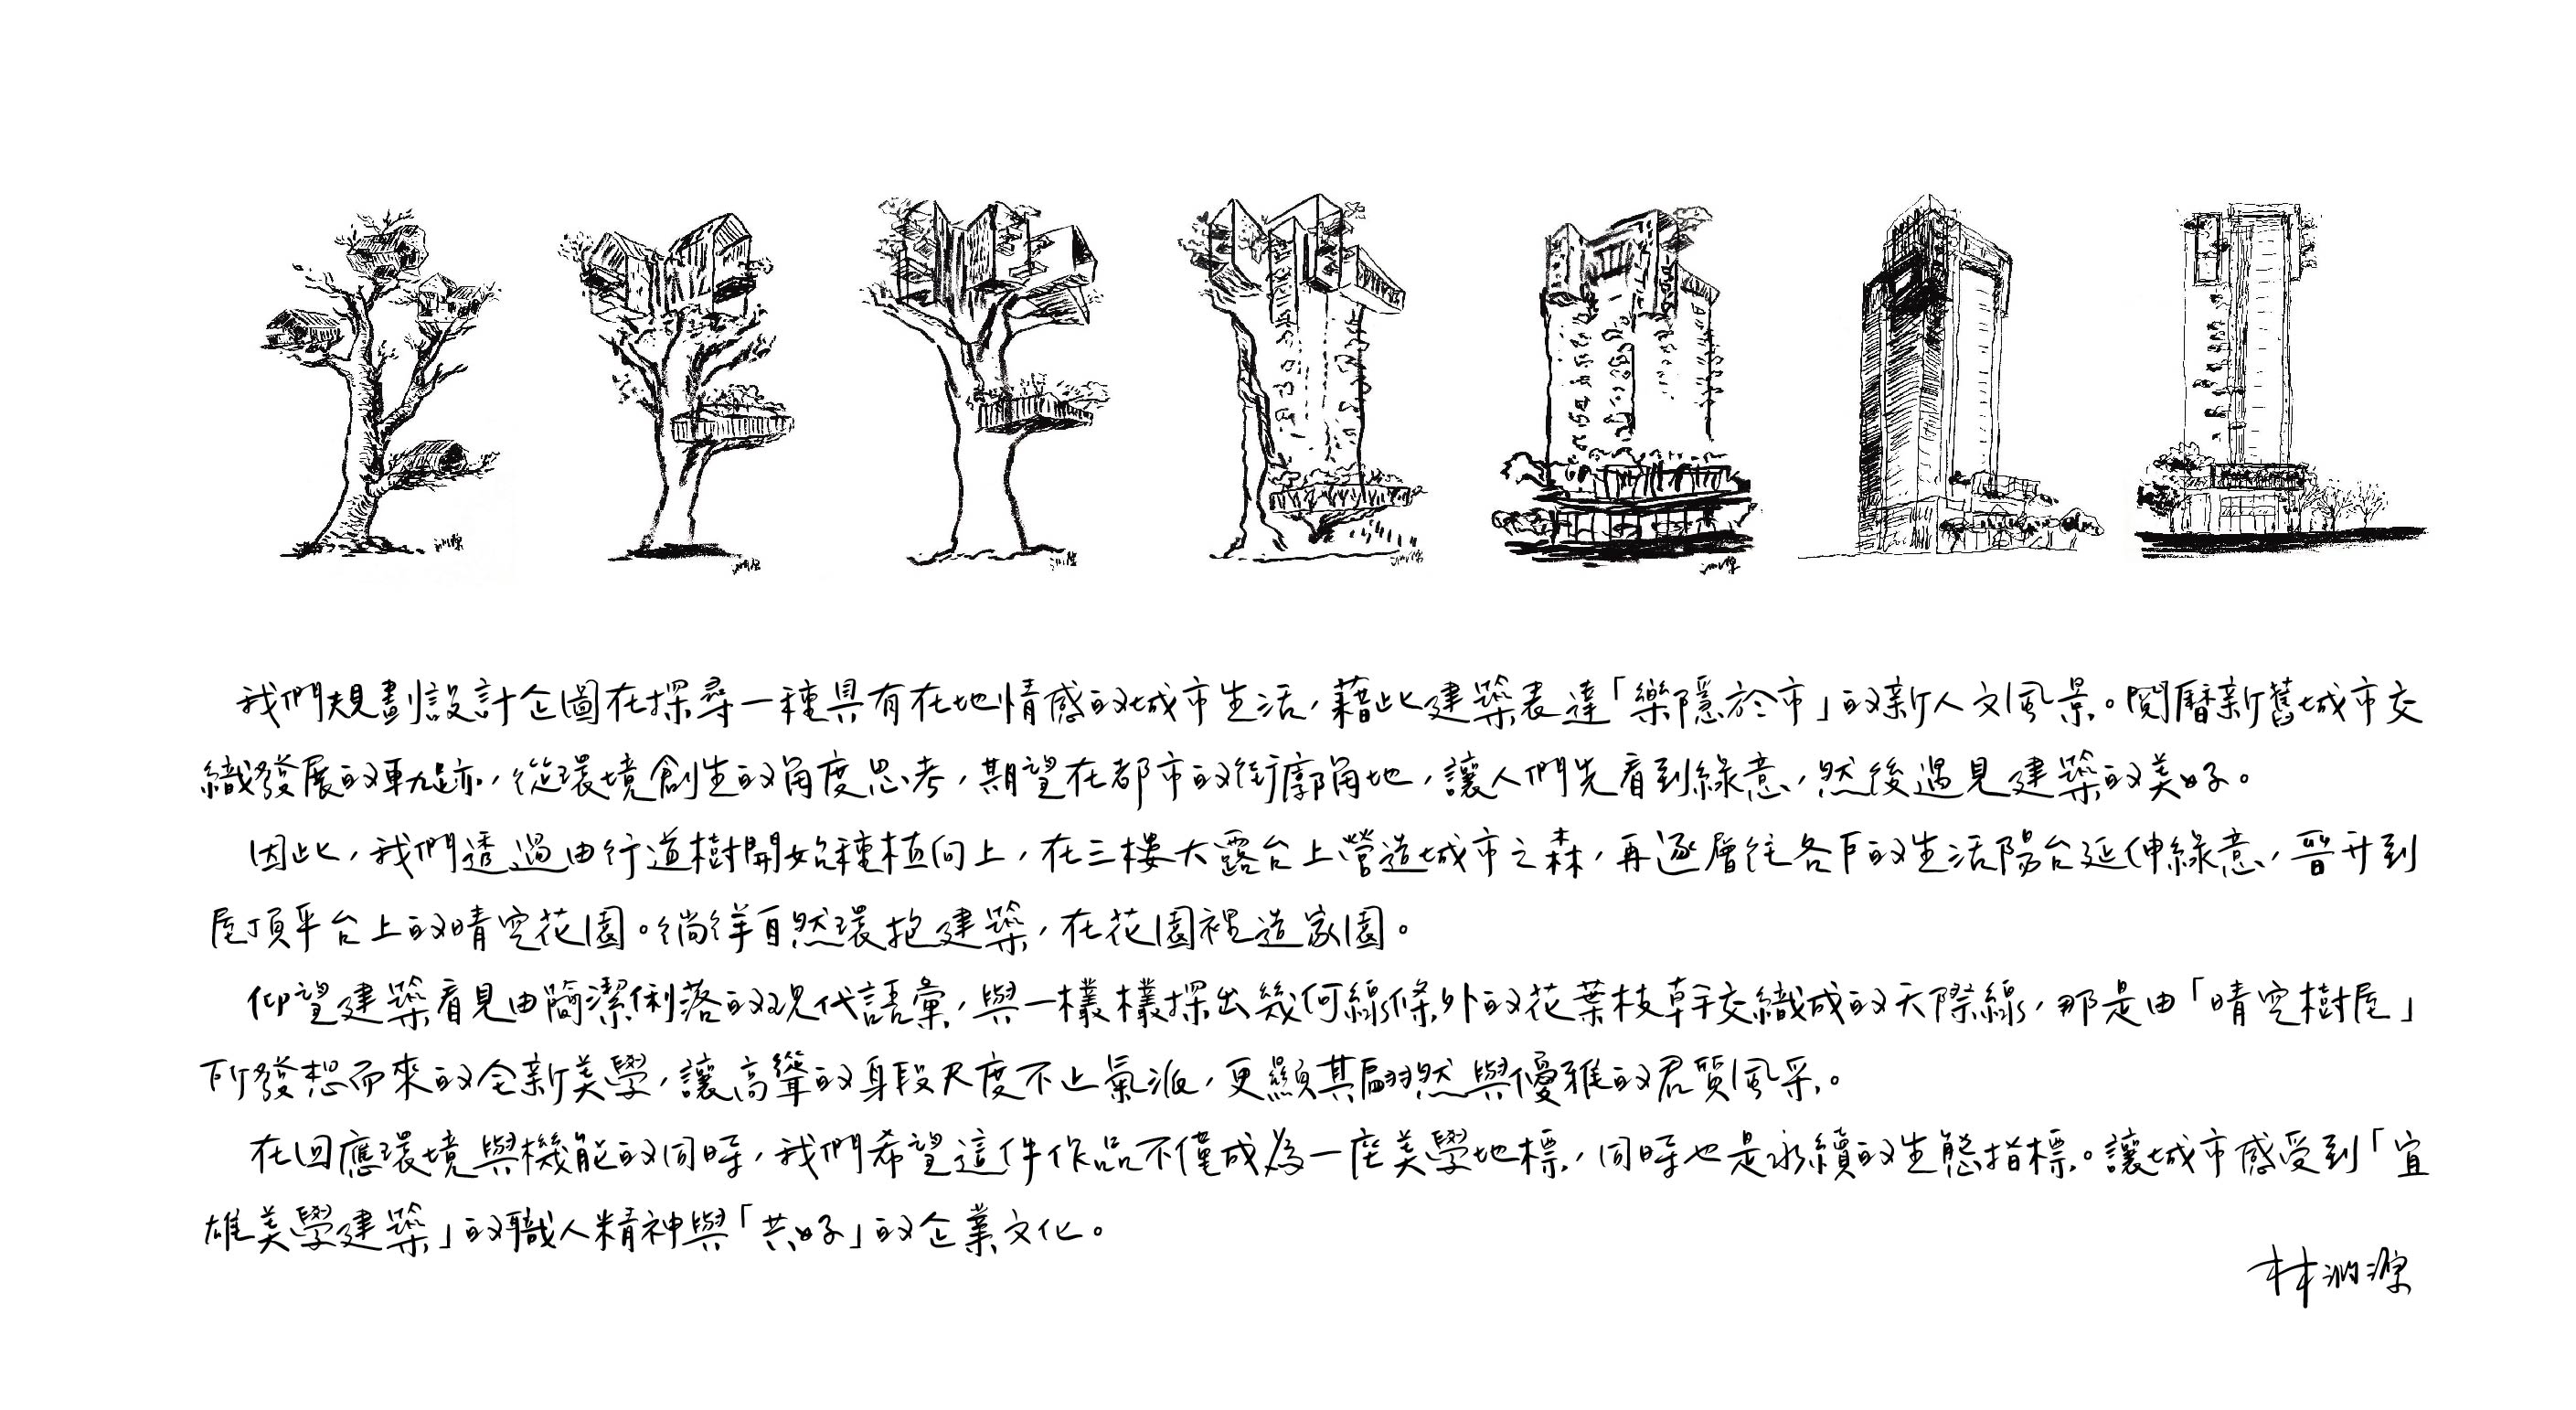 我們規劃設計企圖在探尋一種具有在地情感的城市生活，藉此建築表達「樂隱於市」的新人文風景。閱曆新舊城市交
織發展的軌跡，從環境創生的角度思考，期望在都市的街廓角地，讓人們先看到綠意，然後遇見建築的美好。
因此，我們透過由行道樹開始種植向上，在三樓大露台上營造城市之森，再逐層往各戶的生活陽台延伸綠意，晉升到
屋頂平台上的晴空花園。徜徉自然環抱建築，在花園裡造家園。
仰望建築看見由簡潔俐落的現代語彙，與一欉欉探出幾何線條外的花葉枝幹交織成的天際線，那是由「晴空樹屋」
所發想而來的全新美學，讓高聳的身段尺度不止氣派，更顯其翩然與優雅的君質風采。
在回應環境與機能的同時，我們希望這件作品不僅成為一座美學地標，同時也是永續的生態指標。讓城市感受到「宜
雄美學建築」的職人精神與「共好」的企業文化。
林洄源